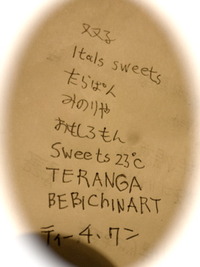 双双る
Itals sweets
たらばん
みのりや
おもしろもん
Sweets 23℃
TERANGA
BEBiCHiNART
ティー 4、ワン